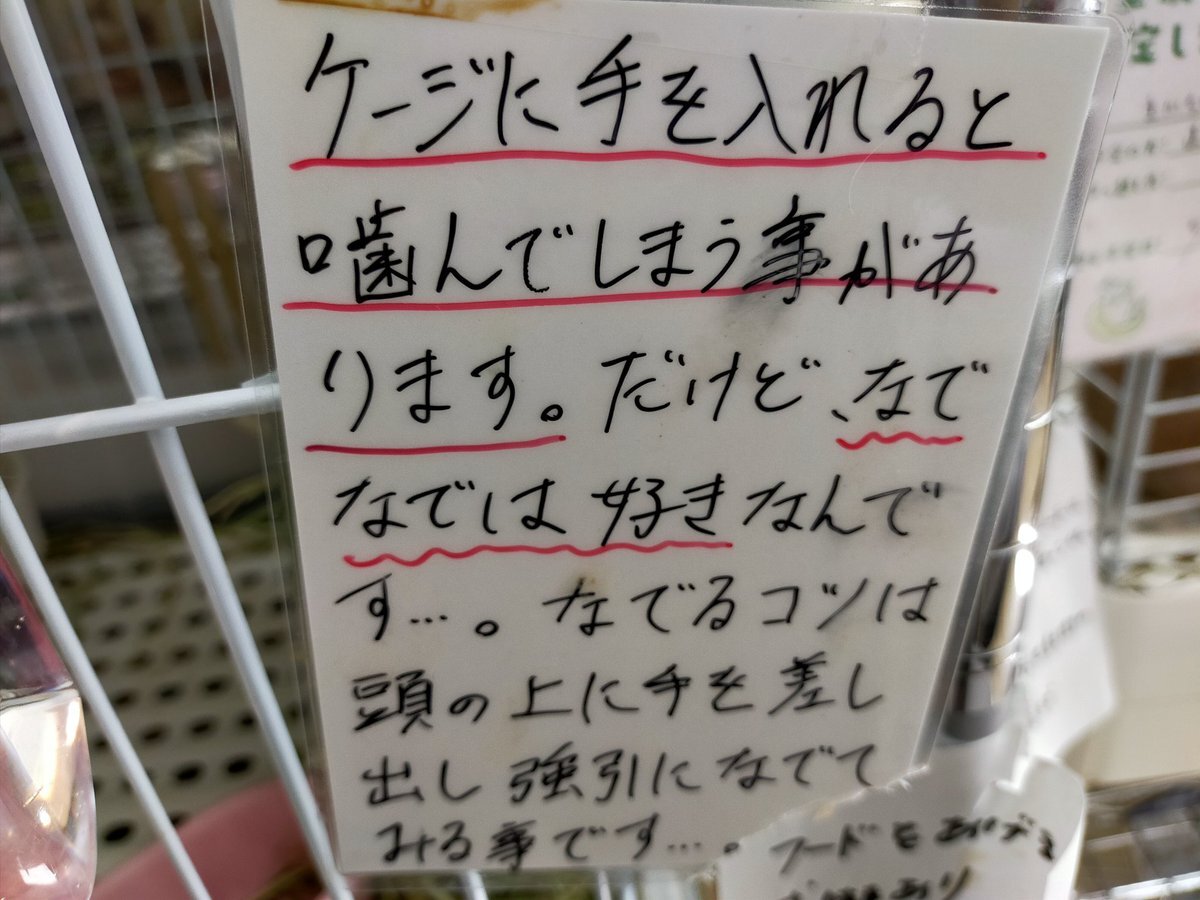 ケージに手を入れると
噛んでしまう事があ
ります。だけど、なで
なでは好きなんで
す…。なでるコツは
頭の上に手を差し
出し強引になでて
みる事です…。
フードを